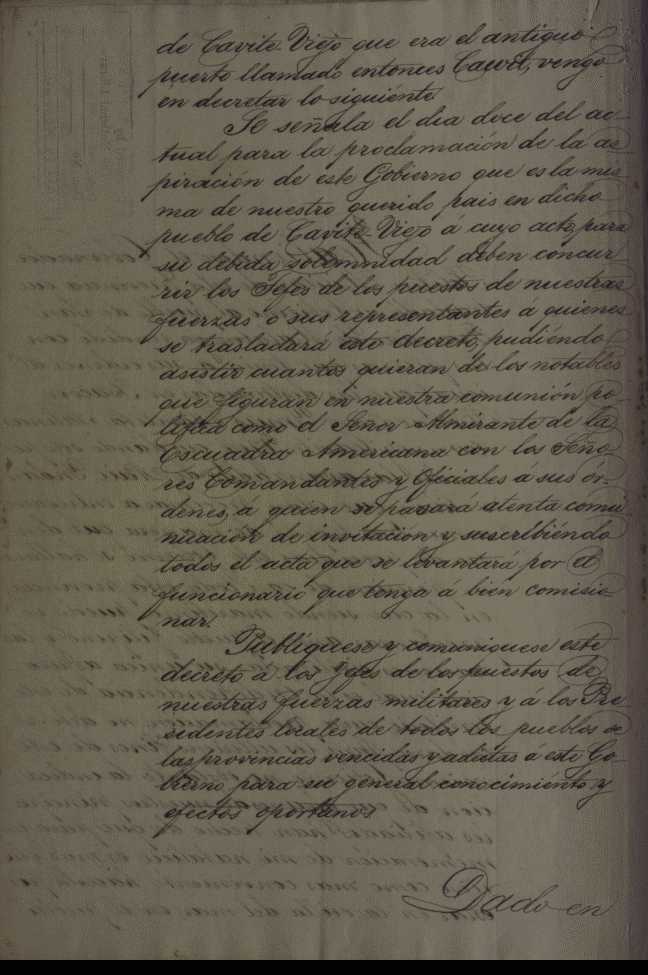 de Cavite-Viejo que era el antiguo
puerto llamado entonces Cawit, vengo
en decretar lo siguiente
Se señala el dia doce del ac-
tual para la proclamación de la as-
piración de este Gobierno que es la mis-
ma de nuestro querido pais en dicho
pueblo de Cavite-Viejo á cuyo acto, para
su debida solemnidad deben concur
rir los Jefes de los puestos de nuestras
fuerzas ó sus representantes á quienes
se trasladará este decreto, pudiéndo
asistir cuantos quieran de los notables
que figuran en nuestra comunión po-
lítica como el Señor Almirante de la
Escuadra Americana con los Seño-
res Comandantes y Oficiales á sus ór-
denes, a quien se pasará atenta comu
nicación de invitación y suscribiéndo
todos el acta que se levantará por el
funcionario que tenga á bién comisio-
nar.
Publíquese y comuniquese este
decreto á los Jefes de los puestos de
nuestras fuerzas militares y á los Pre
sidentes locales de todos los pueblos de
las provincias vencidas y adictas á este Go-
bierno para su general conocimiénto y
efectos oportunos
Dado en